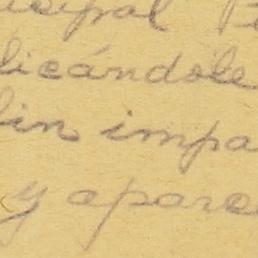 icipal P
licándole
lin impa
y apare